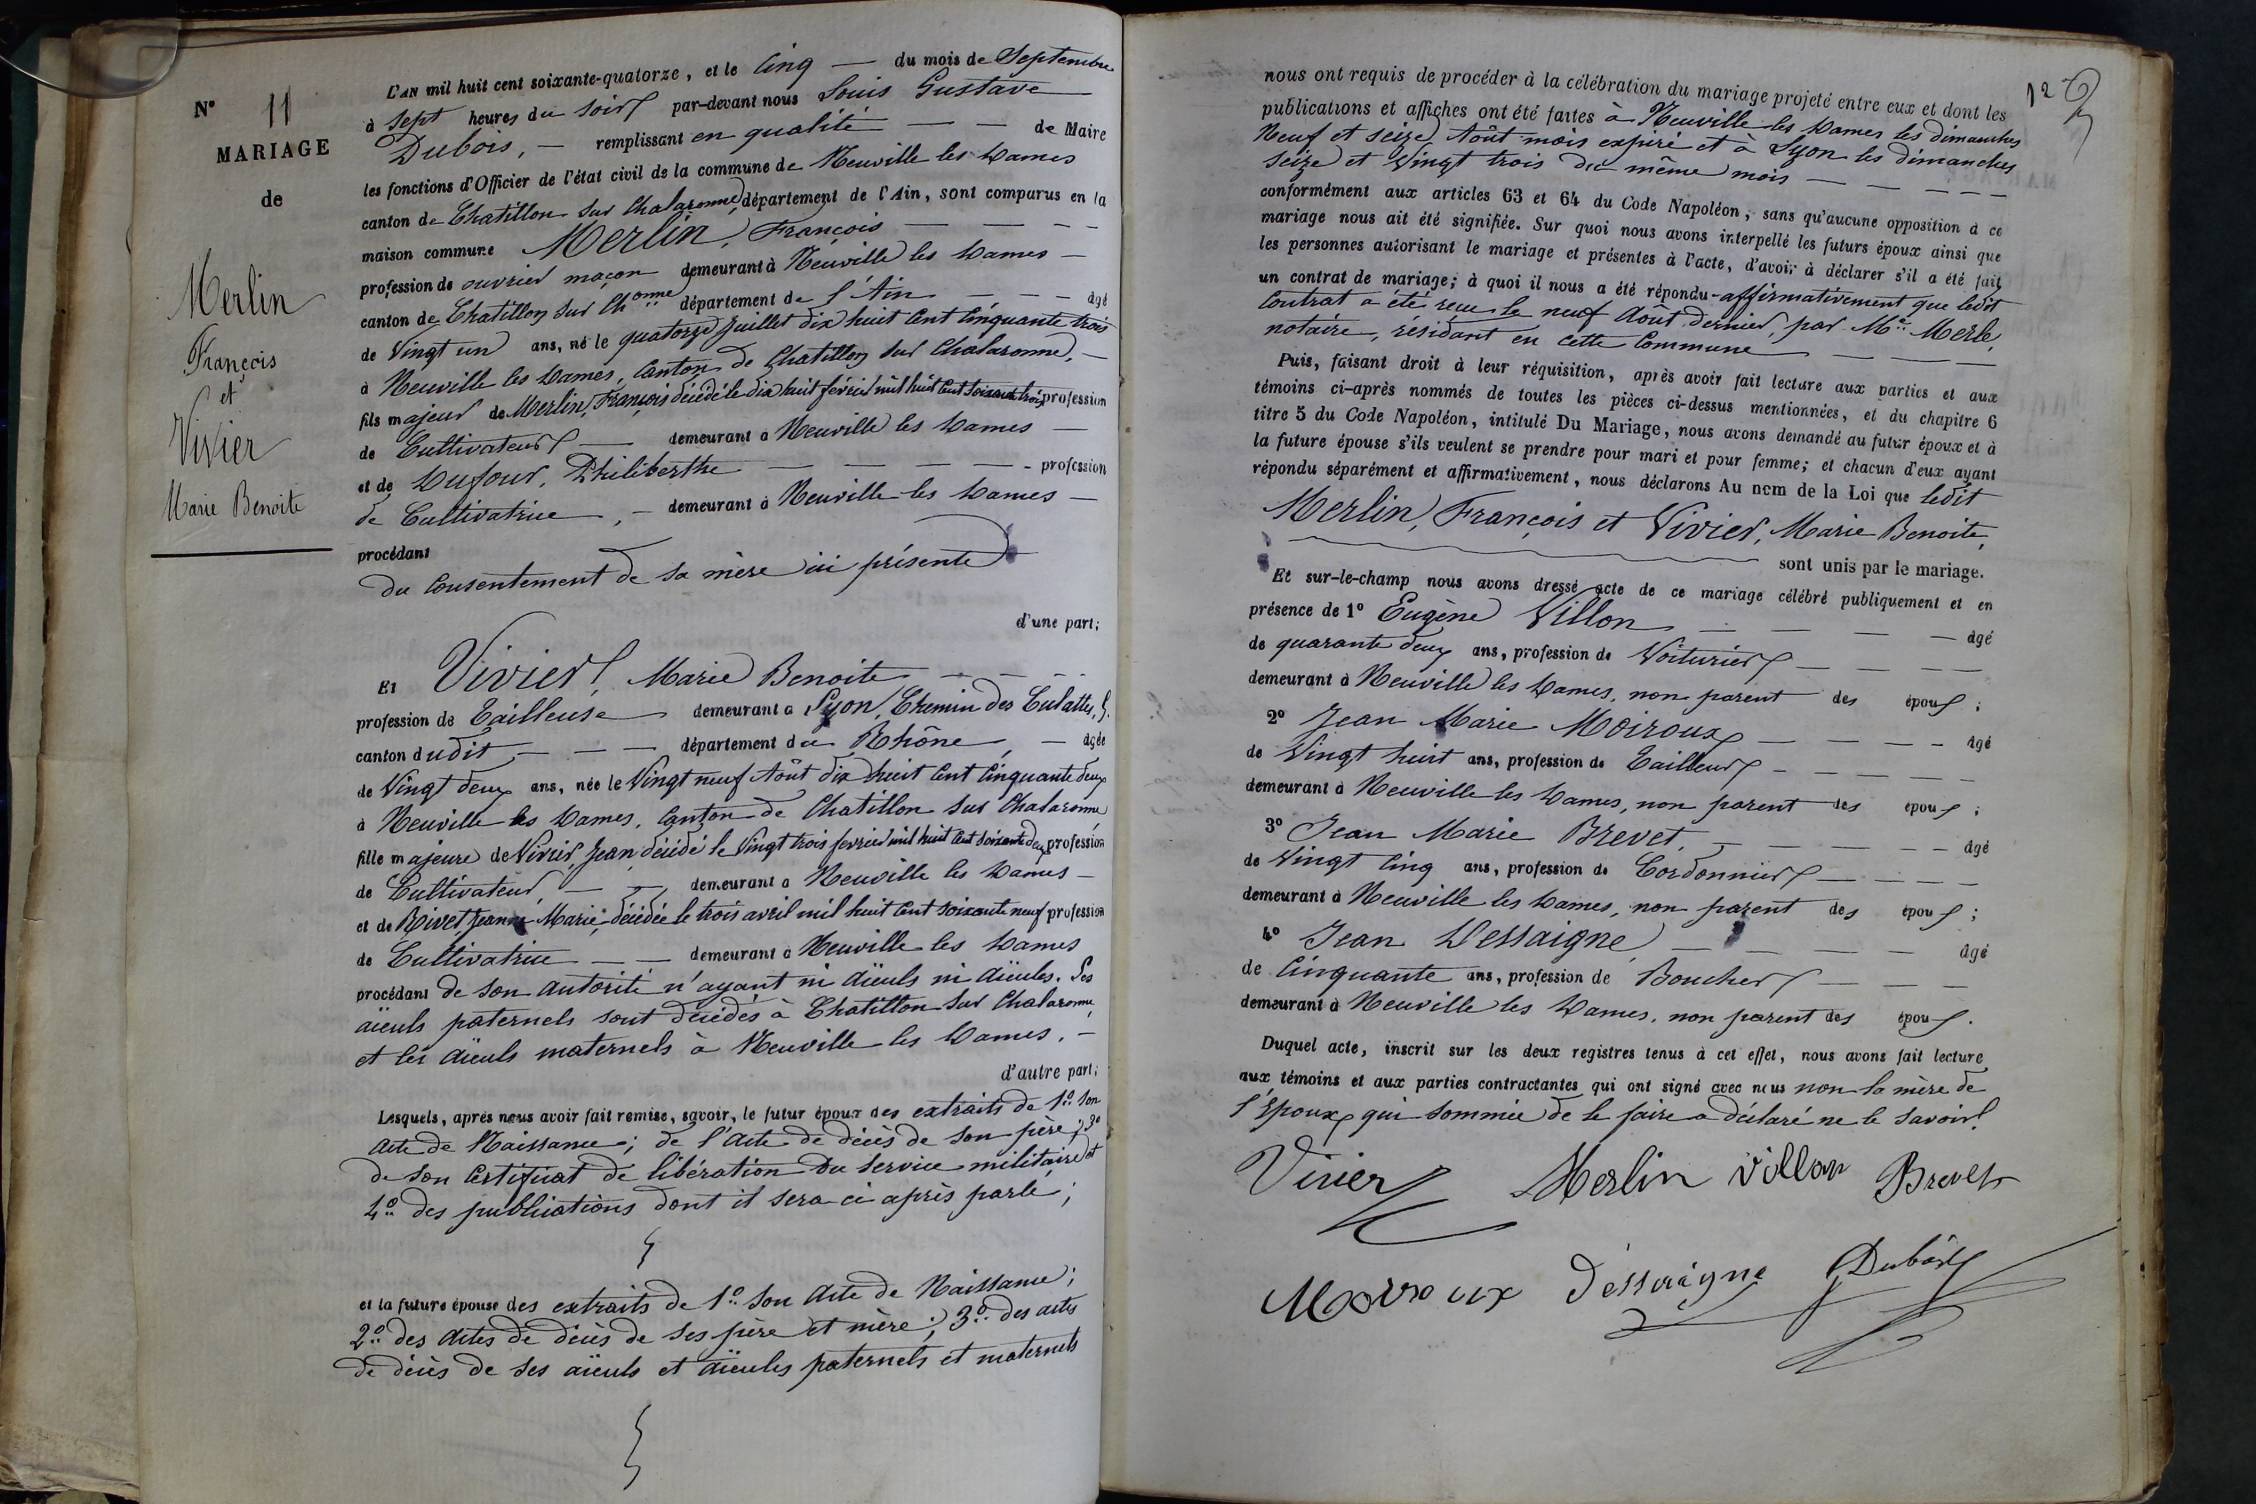 N° 11
MARIAGE
de
Merlin
François
et
Vivier
Marie Benoite
L'AN mil huit cent soixante-quatorze, et le Cinq — du mois de Septembre
à Sept heures du soir par-devant nous Louis Gustave
Dubois, — remplissant en qualité — — de Maire
les fonctions d'Officier de l'état civil de la commune de Neuville les Dames
canton de Chatillon sur Chalaronne, département de l'Ain, sont comparus en la
maison commune Merlin, François — — — —
profession de ouvrier maçon demeurant à Neuville les Dames —
canton de Chatillon sur Chonne département de l'Ain — — — âgé
de Vingt un ans, né le quatorze Juillet dix huit Cent Cinquante trois
à Neuville les Dames, Canton de Chatillon sur Chalaronne, —
fils majeur de Merlin, François décédé le dix huit février mil huit Cent soixante trois profession
de Cultivateur — demeurant à Neuville les Dames —
et de Dufour, Philiberthe — — — — profession
de Cultivatrice, — demeurant à Neuville les Dames —
procédant
du Consentement de sa mère ici présente
d'une part;
Et Vivier, Marie Benoite — — — —
profession de Tailleuse demeurant à Lyon, Chemin des Culattes, 5.
canton dudit — — — département du Rhône, — âgée
de Vingt deux ans, née le Vingt neuf Août dix huit Cent Cinquante deux
à Neuville les Dames, Canton de Chatillon sur Chalaronne,
fille majeure de Vivier, Jean décédé le Vingt trois février mil huit Cent soixante deux profession
de Cultivateur, — — demeurant à Neuville les Dames —
et de Rivet, Jeanne Marie, décédée le trois avril mil huit Cent soixante neuf profession
de Cultivatrice — — demeurant à Neuville les Dames
procédant de son autorité n'ayant ni aïeuls ni aïeules. Ses
aïeuls paternels sont décédés à Chatillon sur Chalaronne,
et les aïeuls maternels à Neuville les Dames. —
d'autre part;
Lesquels, après nous avoir fait remise, savoir, le futur époux des extraits de 1° son
acte de Naissance; de l'acte de décès de son père; 3°
de son Certificat de libération du service militaire et
4° des publications dont il sera ci après parlé;
et la future épouse des extraits de 1° son acte de Naissance;
2° des actes de décès de ses père et mère; 3° des actes
de décès de ses aïeuls et aïeules paternels et maternels
12
nous ont requis de procéder à la célébration du mariage projeté entre eux et dont les
publications et affiches ont été faites à Neuville les Dames les dimanches
Neuf et seize Août mois expiré et à Lyon les dimanches
seize et Vingt trois du même mois — — — —
conformément aux articles 63 et 64 du Code Napoléon, sans qu'aucune opposition à ce
mariage nous ait été signifiée. Sur quoi nous avons interpellé les futurs époux ainsi que
les personnes autorisant le mariage et présentes à l'acte, d'avoir à déclarer s'il a été fait
un contrat de mariage; à quoi il nous a été répondu affirmativement que ledit
Contrat a été reçu le neuf Août dernier, par Me Merle,
notaire, résidant en cette Commune — — —
Puis, faisant droit à leur réquisition, après avoir fait lecture aux parties et aux
témoins ci-après nommés de toutes les pièces ci-dessus mentionnées, et du chapitre 6
titre 5 du Code Napoléon, intitulé Du Mariage, nous avons demandé au futur époux et à
la future épouse s'ils veulent se prendre pour mari et pour femme; et chacun d'eux ayant
répondu séparément et affirmativement, nous déclarons Au nom de la Loi que ledit
Merlin, François et Vivier, Marie Benoite,
sont unis par le mariage.
Et sur-le-champ nous avons dressé acte de ce mariage célébré publiquement et en
présence de 1° Eugène Villon — — — — âgé
de quarante deux ans, profession de Voiturier — — —
demeurant à Neuville les Dames, non parent des époux;
2° Jean Marie Moiroux — — — — âgé
de Vingt huit ans, profession de Tailleur — — — —
demeurant à Neuville les Dames, non parent des époux;
3° Jean Marie Brevet, — — — — âgé
de Vingt Cinq ans, profession de Cordonnier — — —
demeurant à Neuville les Dames, non parent des époux;
4° Jean Dessaigne — — — — âgé
de Cinquante ans, profession de Boucher — — —
demeurant à Neuville les Dames, non parent des époux.
Duquel acte, inscrit sur les deux registres tenus à cet effet, nous avons fait lecture
aux témoins et aux parties contractantes qui ont signé avec nous non la mère de
l'Epoux qui sommée de le faire a déclaré ne le savoir.
Vivier Merlin Villon Brevet
Moiroux Dessaigne Dubois